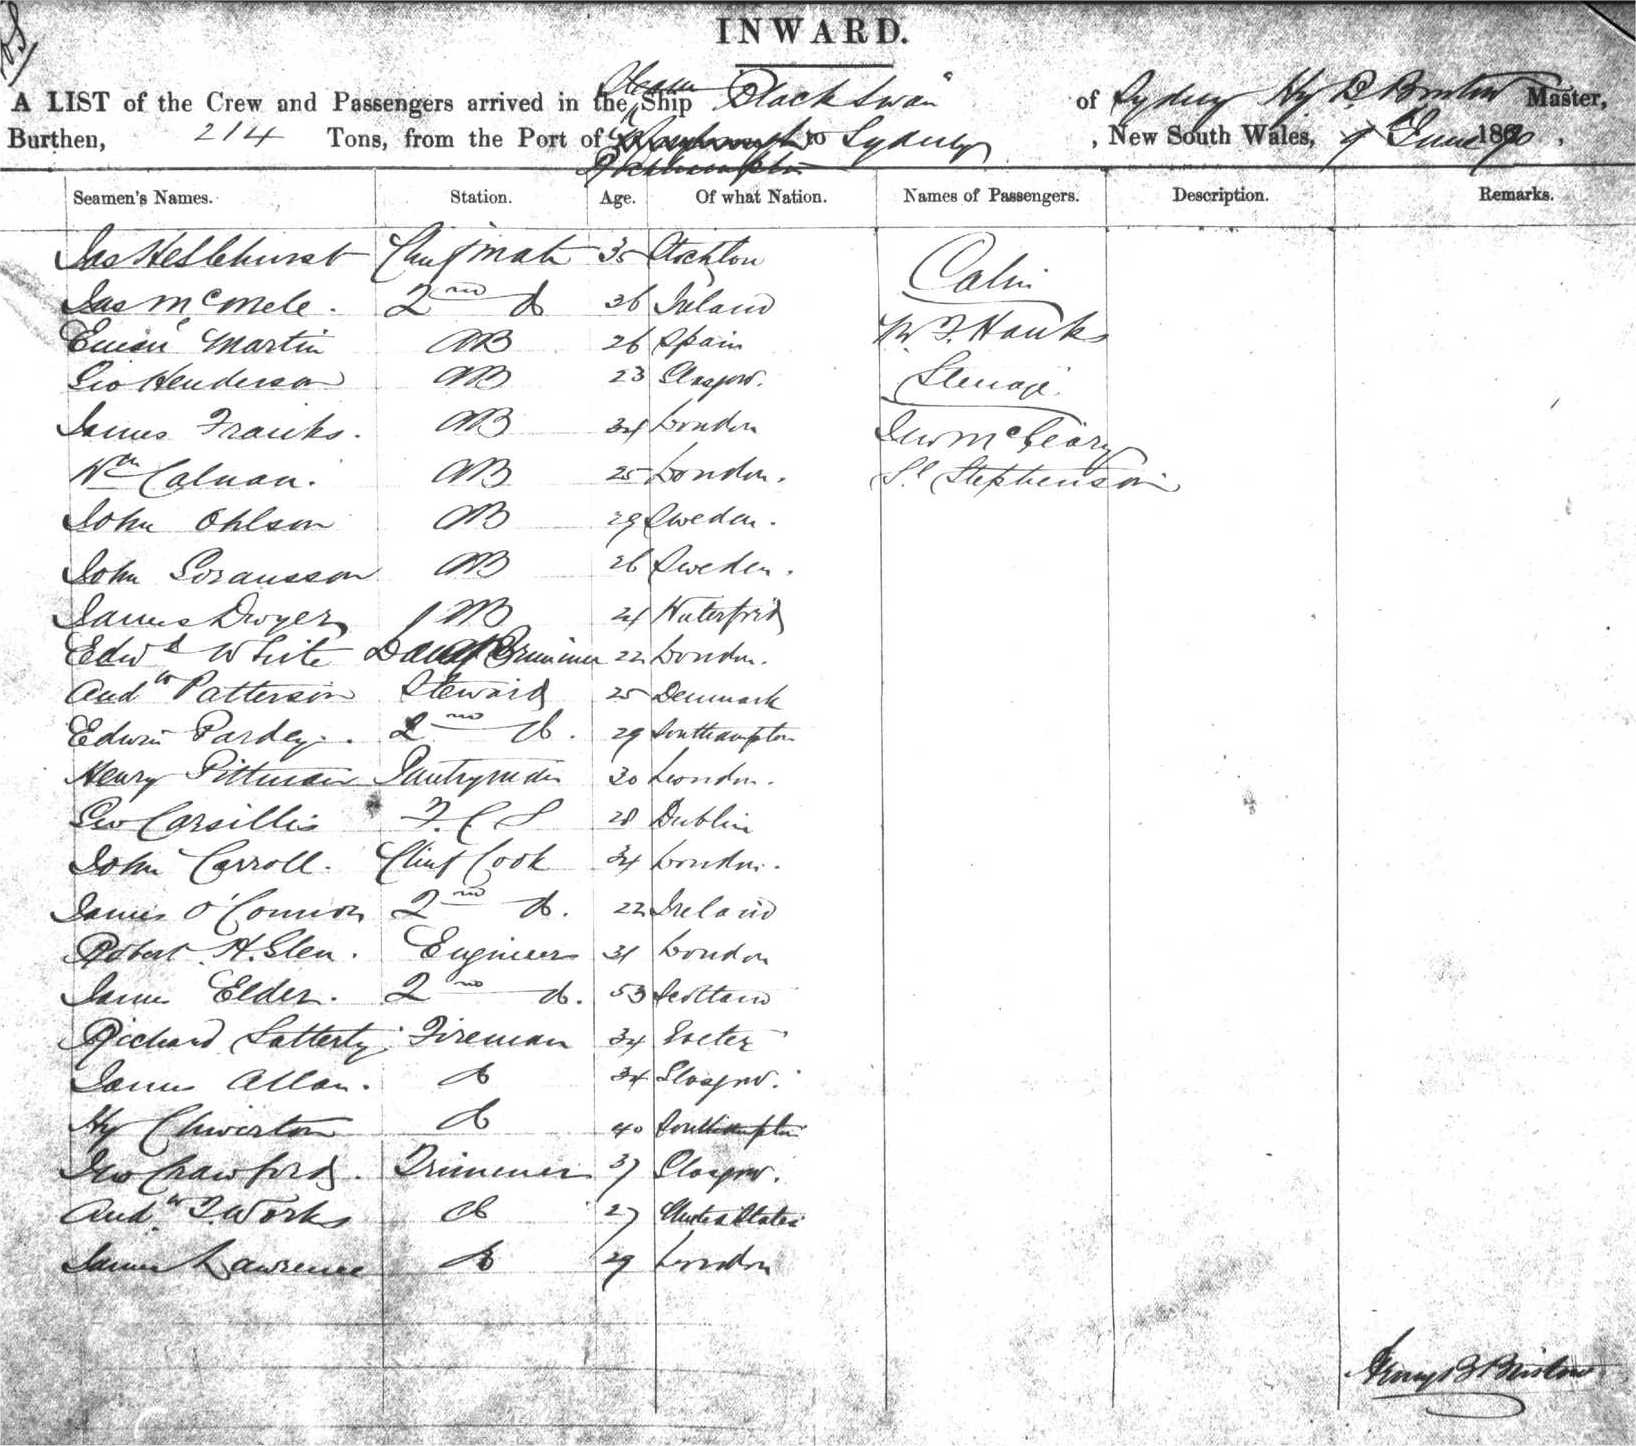 INWARD.
A LIST of the Crew and Passengers arrived in the Steam Ship "Black Swan" of Sydney Hy B. Bristow Master,
Burthen, 214 Tons, from the Port of Rockhampton to Sydney, New South Wales, 9 June 1870,
Seamen's Names. Station. Age. Of what Nation. Names of Passengers. Description. Remarks.
Jas Heslehurst Chief mate 35 Stockton Cabin
Jas McMele. 2nd do 36 Ireland W. F. Hanks
Martin AB 26 Spain
Geo Henderson AB 23 Glasgow. Steerage.
James Franks. AB 34 London Jno McGeary
Wm Calnan. AB 25 London. Sl Stephenson
John Ohlson AB 29 Sweden.
John Soransson AB 26 Sweden.
James Dwyer AB 24 Waterford
Edwd White Trimmer 22 London.
Andw Patterson Steward 25 Denmark
Edwin Pardey. 2nd do. 29 Southampton
Henry Pittman Pantryman 30 London.
Geo Carsillis F. C S 28 Dublin
John Carroll. Chief Cook 34 London.
James O'Connor 2nd do. 22 Ireland
Robert H. Glen. Engineer 31 London
James Elder. 2nd do. 53 Scotland
Richard Latterty Fireman 34 Exeter
James Allan. do 34 Glasgow.
Hy Chiverton do 40 Southampton
Jno Crawford. Trimmer 37 Glasgow.
Andw T. Works do 27 United States
James Lawrence do 29 London
Henry B Bristow